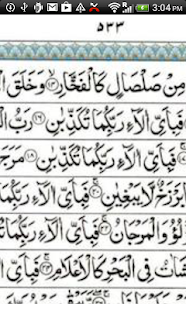 3:04 PM
٥٣٣
مِنْ صَلْصَالٍ كَالْفَخَّارِ ۝١٤ وَخَلَقَ الْ
فَبِاَيِّ اٰلَآءِ رَبِّكُمَا تُكَذِّبٰنِ ۝١٦ رَبُّ الْ
فَبِاَيِّ اٰلَآءِ رَبِّكُمَا تُكَذِّبٰنِ ۝١٨ مَرَجَ
بَرْزَخٌ لَّا يَبْغِيٰنِ ۝٢٠ فَبِاَيِّ اٰلَآءِ رَ
لُّؤْلُؤُ وَالْمَرْجَانُ ۝٢٢ فَبِاَيِّ اٰلَآءِ رَبِّكُمَا
شَاٰتُ فِي الْبَحْرِ كَالْاَعْلَامِ ۝٢٤ فَبِاَيِّ